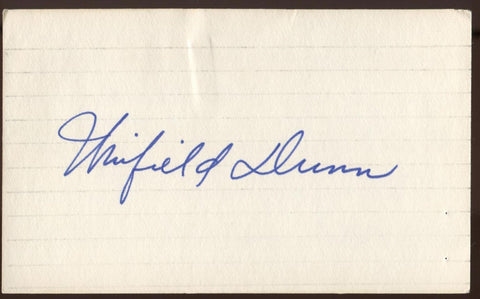 Winfield Dunn